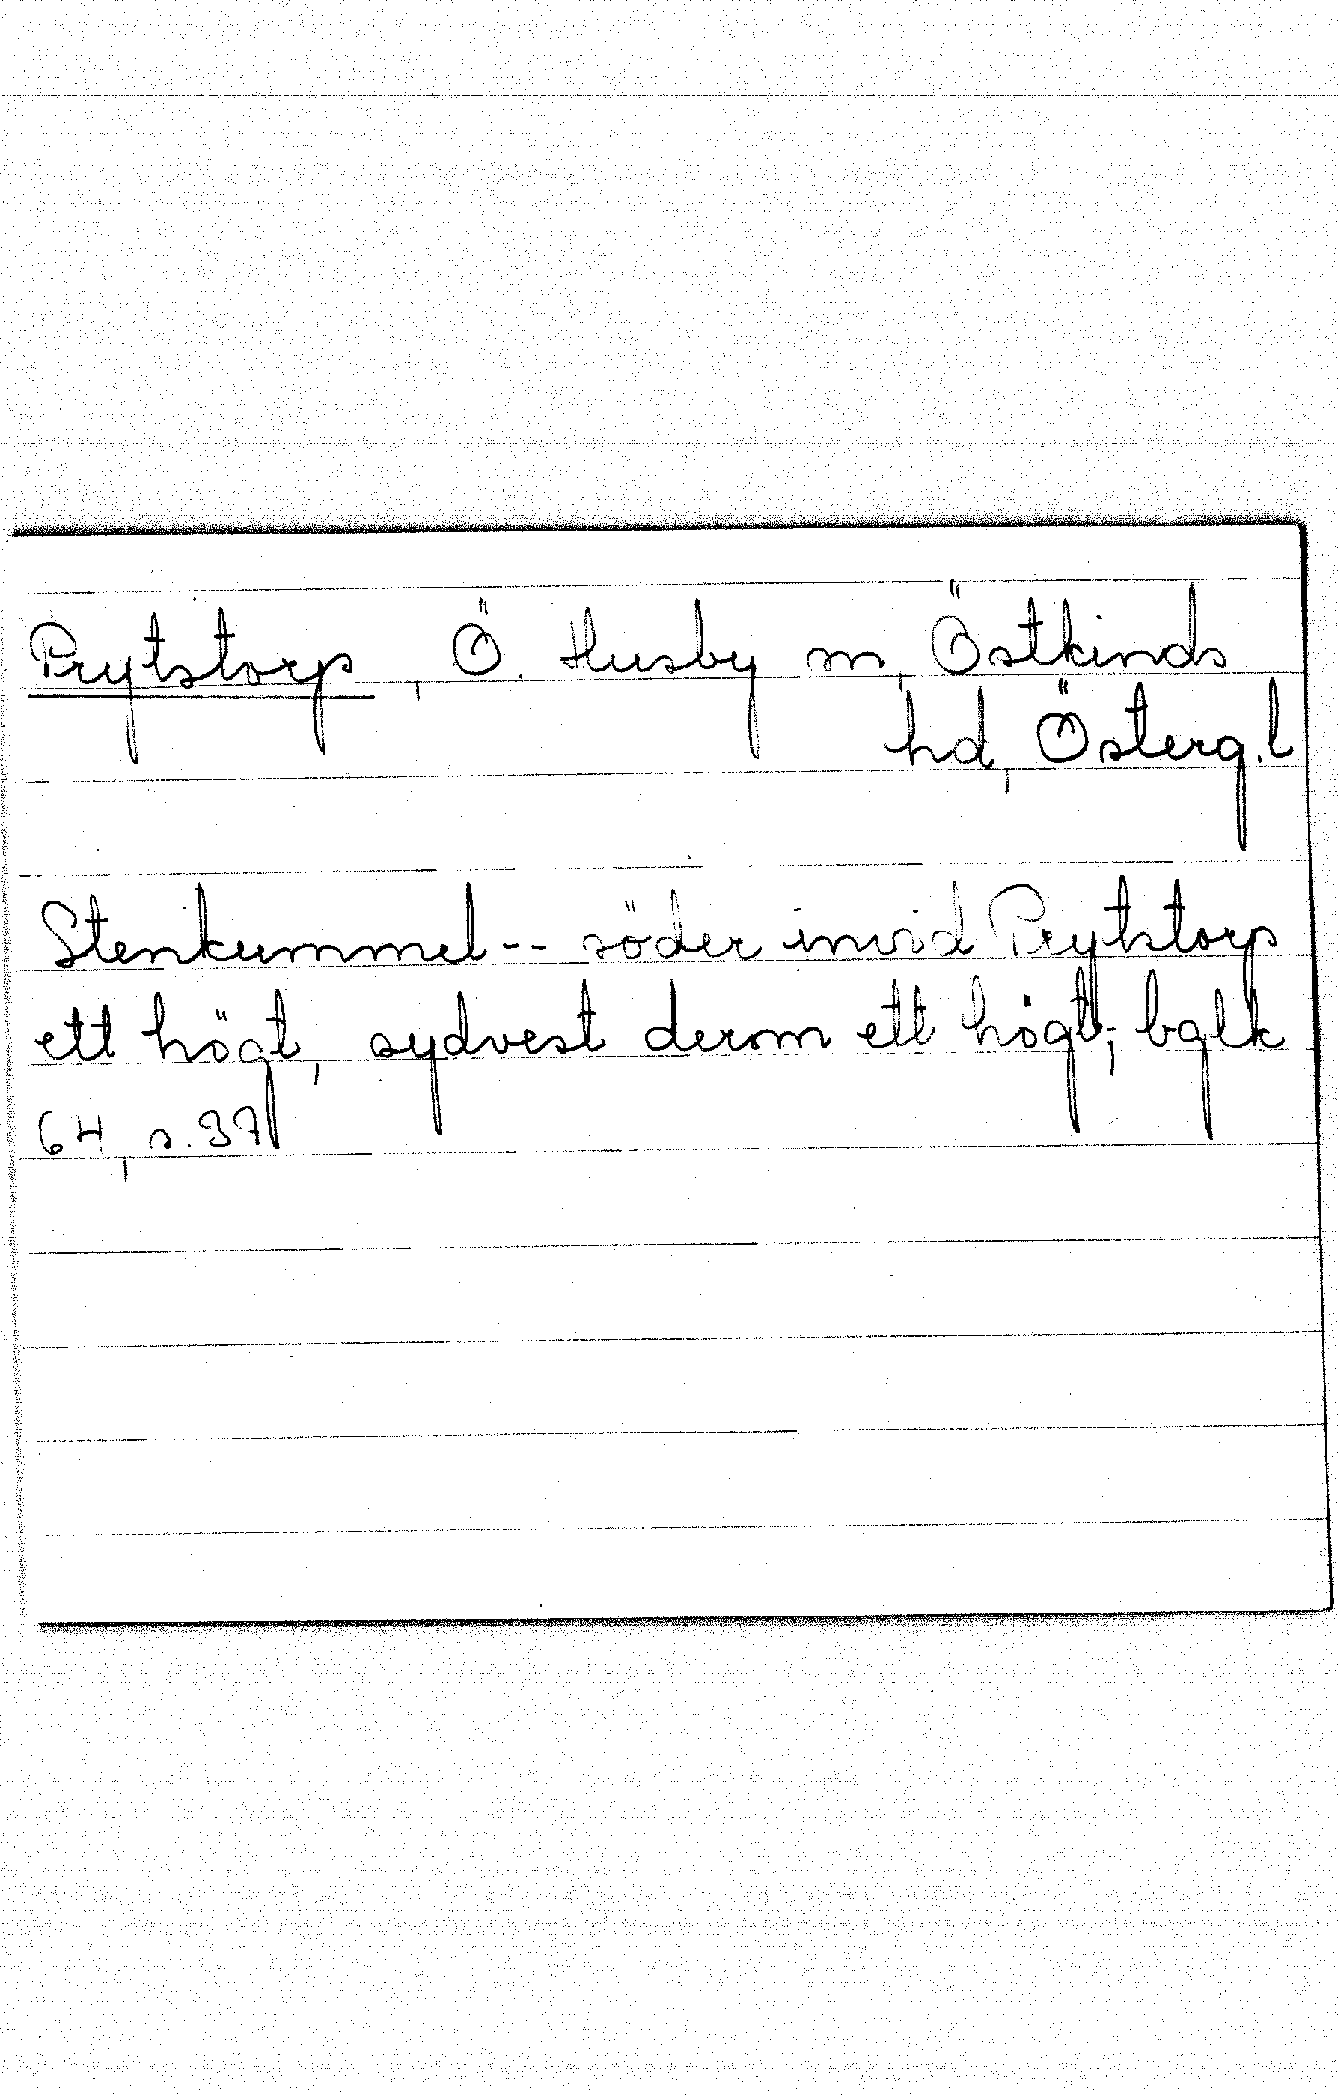 Prytstorp, Ö. Husby sn, Östkinds
hd, Österg.l
Stenkummel -- söder invid Prytstorp
ett högt, sydvest derom ett högt; bglk
64, s. 37